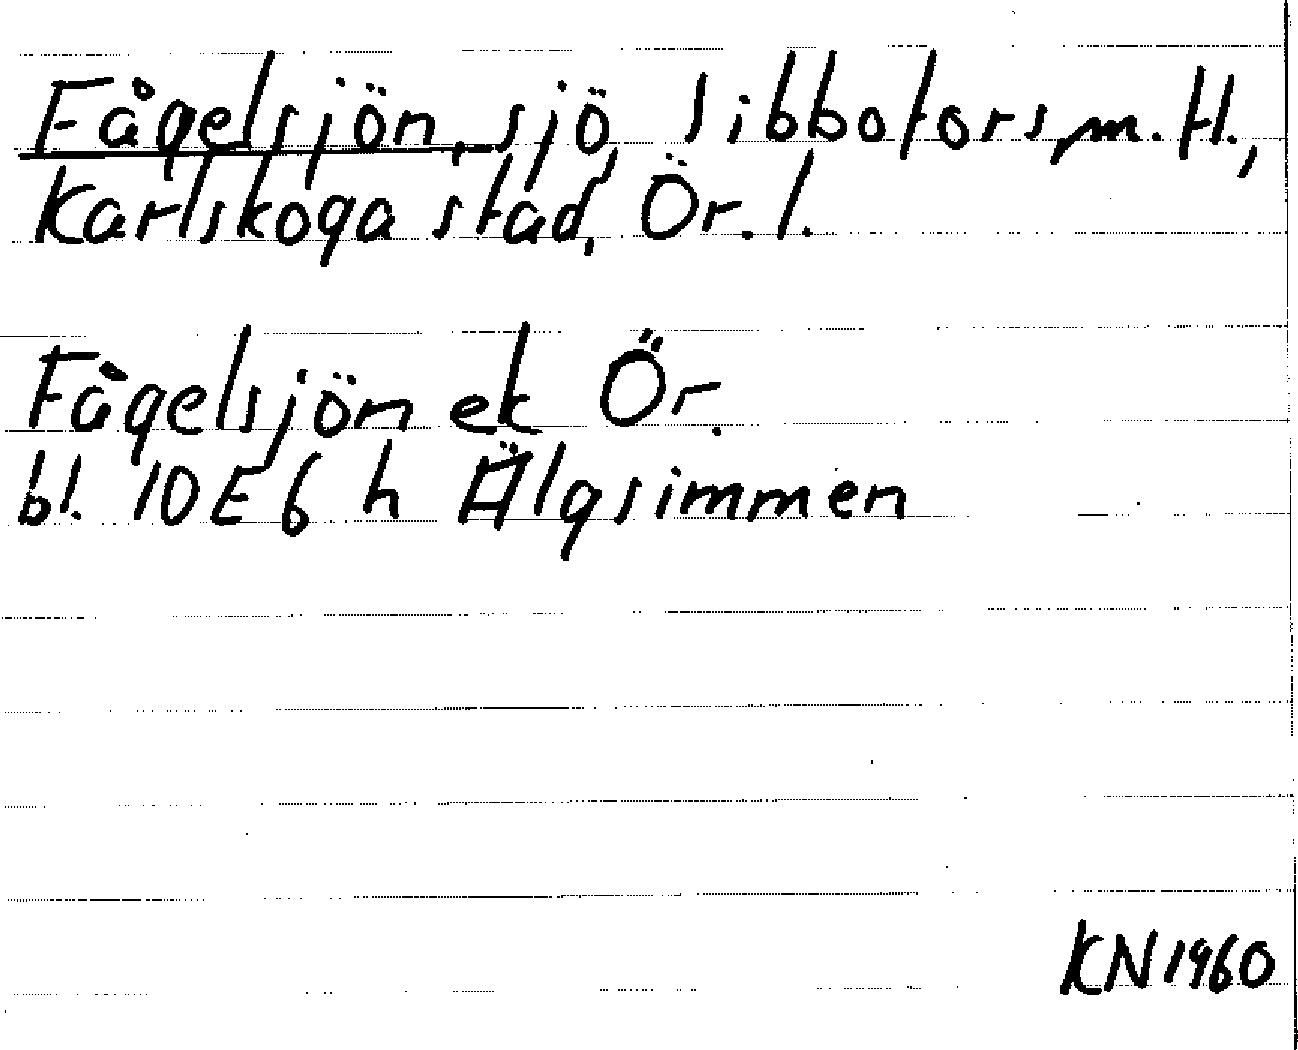 Fågelsjön, sjö, Sibbofors, m. fl.,
Karlskoga stad, Ör. l.
Fågelsjön ek Ör.
bl. 10 E 6 h Älgsimmen
KN 1960